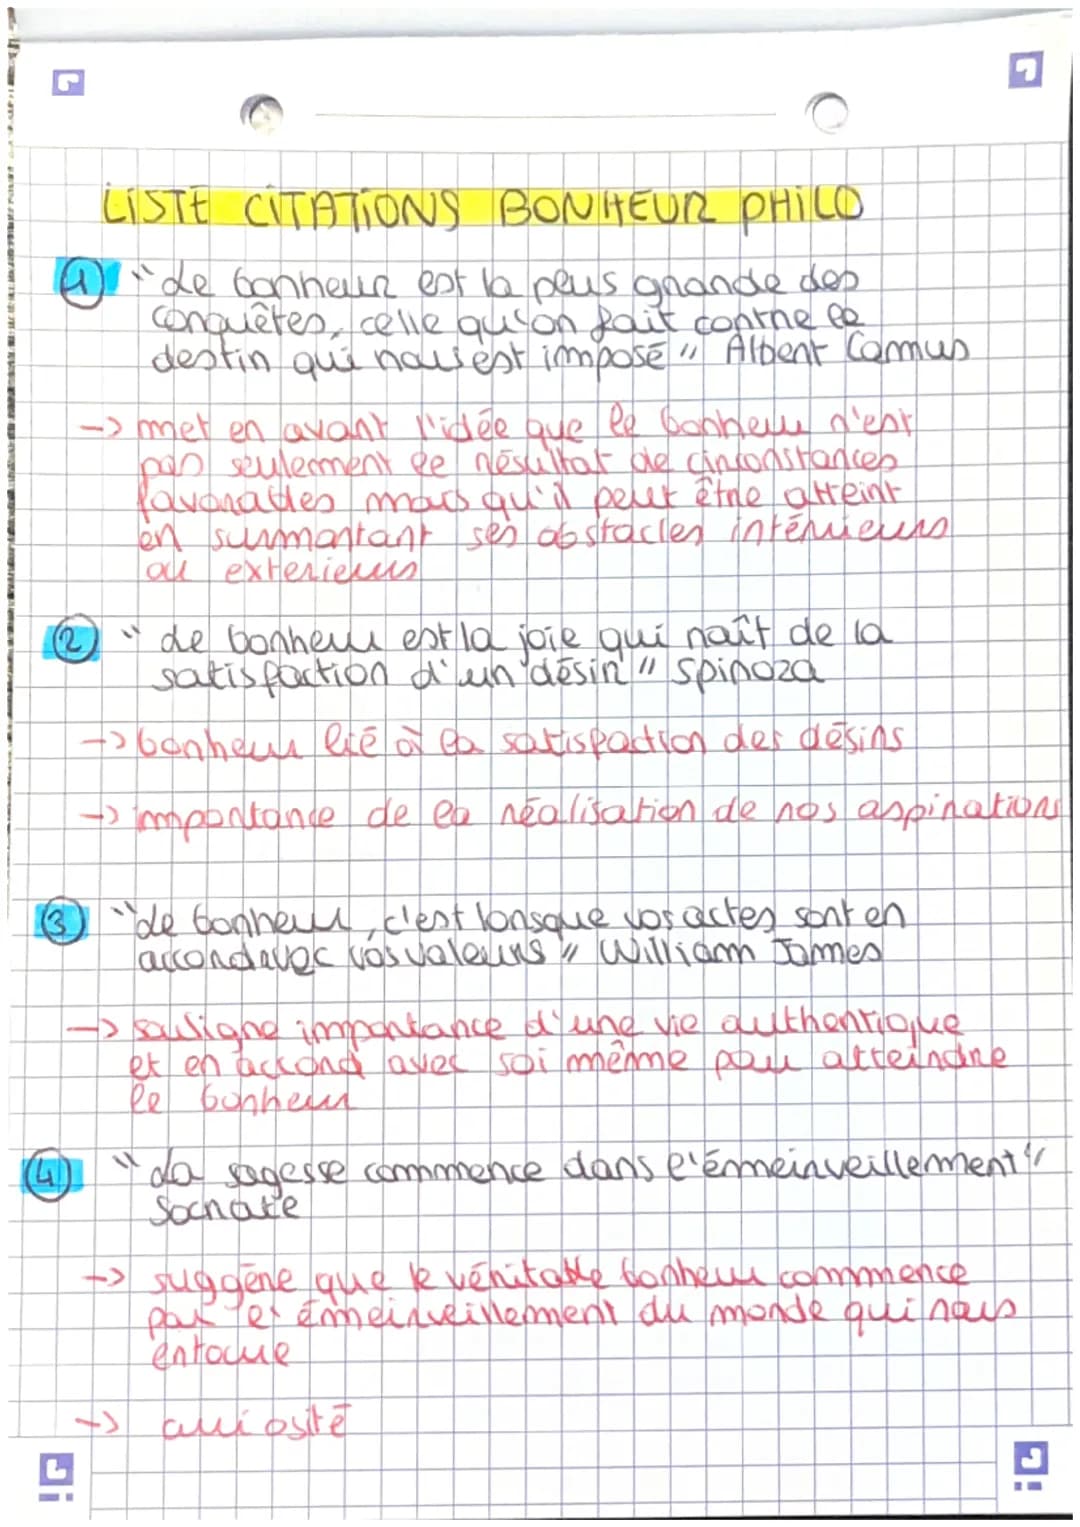 LISTE CITATIONS BONHEUR PHILO
1 "Le bonheur est la plus grande des
conquêtes, celle qu'on fait contre le
destin qui nous est imposé" Albert Camus
-> met en avant l'idée que le bonheur n'est
pas seulement le résultat de circonstances
favorables mais qu'il peut être atteint
en surmontant ses obstacles intérieurs
ou exterieurs
2 "Le bonheur est la joie qui naît de la
satisfaction d'un désir" Spinoza
-> bonheur lié à la satisfaction des désirs
-> importance de la réalisation de nos aspirations
3 "Le bonheur, c'est lorsque vos actes sont en
accord avec vos valeurs" William James
-> souligne importance d'une vie authentique
et en accord avec soi même pour atteindre
le bonheur
4 "La sagesse commence dans l'émeirveillement"
Socrate
-> suggère que le véritable bonheur commence
par l'émeirveillement du monde qui nous
entoure
-> curiosité